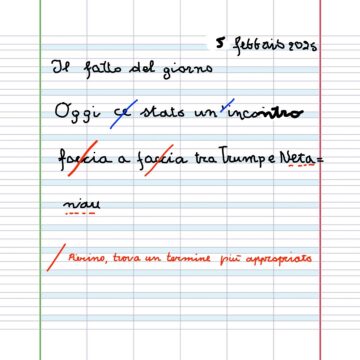 5 febbraio 2025
Il fatto del giorno
Oggi ce stato un incontro
faccia a faccia tra Trump e Neta=
niau
Pierino, trova un termine più appropriato